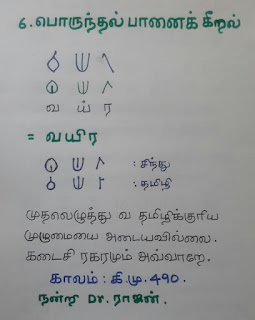 6. பொருந்தல் பானைக் கீறல்
வ ய் ர
= வயிர
: சிந்து
: தமிழி
முதலெழுத்து வ தமிழிக்குரிய
முழுமையை அடையவில்லை.
கடைசி ரகரமும் அவ்வாறே.
காலம் : கி.மு. 490.
நன்றி Dr. ராஜன்.